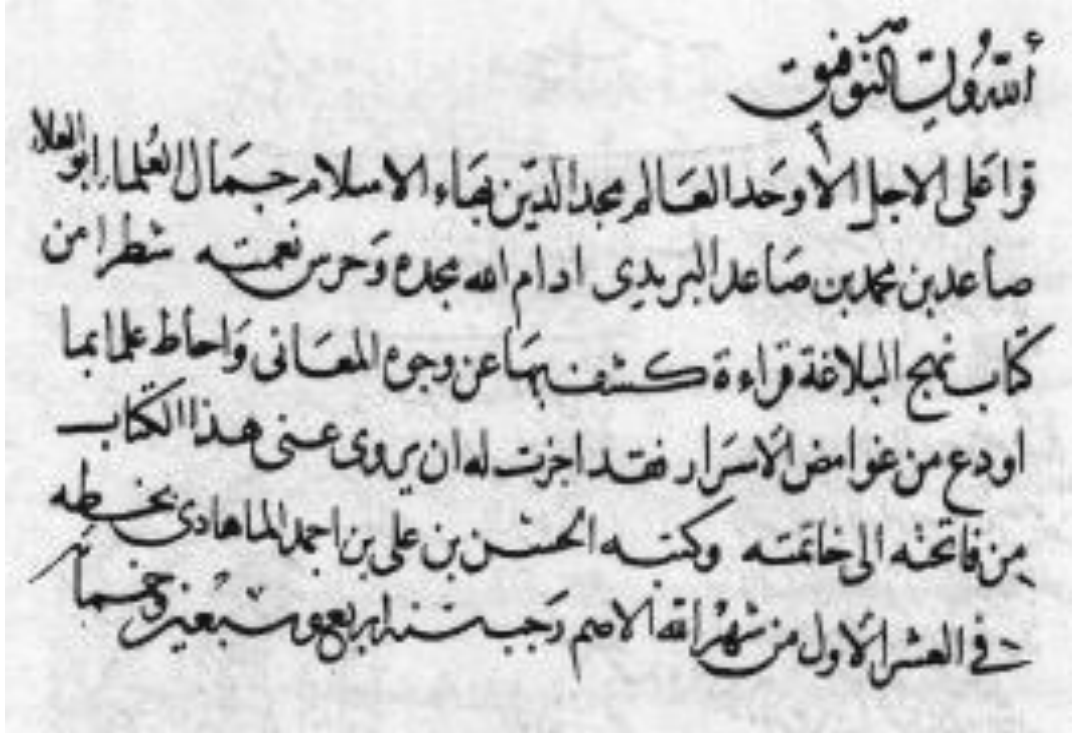 الله ولي التوفيق
قرا على الاجل الأوحد العالم مجد الدين بهاء الاسلام جمال العلما ابو العلاء
صاعد بن محمد بن صاعد البريدى ادام الله مجده وحرس نعمته شطرا من
كتاب نهج البلاغة قراءة كشف بها عن وجوه المعانى واحاط علما بما
اودع من غوامض الأسرار فقد اجزت له ان يروى عنى هذا الكتاب
من فاتحته الى خاتمته وكتبه الحسن بن على بن احمد الماهادى بخطه
فى العشر الأول من شهر الله الاصم رجب سنه اربع وسبعين وخمسمائه